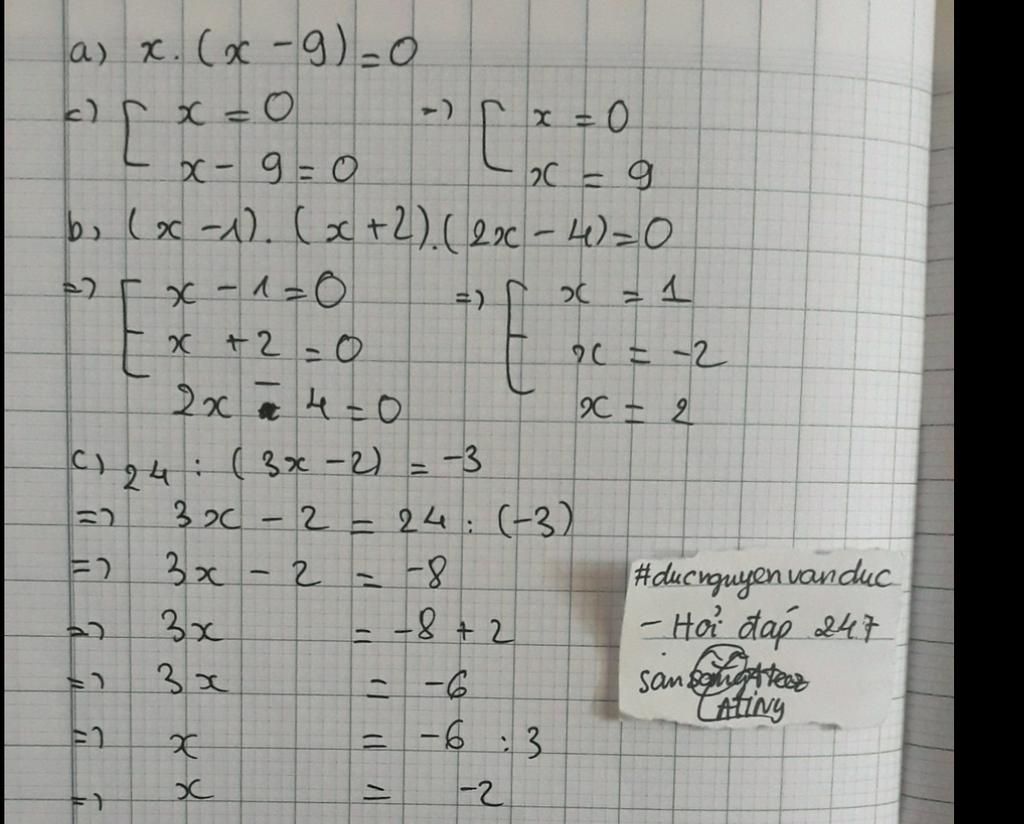 a) x. (x - 9) = 0
=> [ x = 0 => [ x = 0
x - 9 = 0 x = 9
b, (x - 1). (x + 2). (2x - 4) = 0
=> [ x - 1 = 0 => [ x = 1
x + 2 = 0 x = -2
2x - 4 = 0 x = 2
c) 24 : (3x - 2) = -3
=> 3x - 2 = 24 : (-3)
=> 3x - 2 = -8
=> 3x = -8 + 2
=> 3x = -6
=> x = -6 : 3
=> x = -2
#ducnguyenvanduc
- Hỏi đáp 247
ATINY